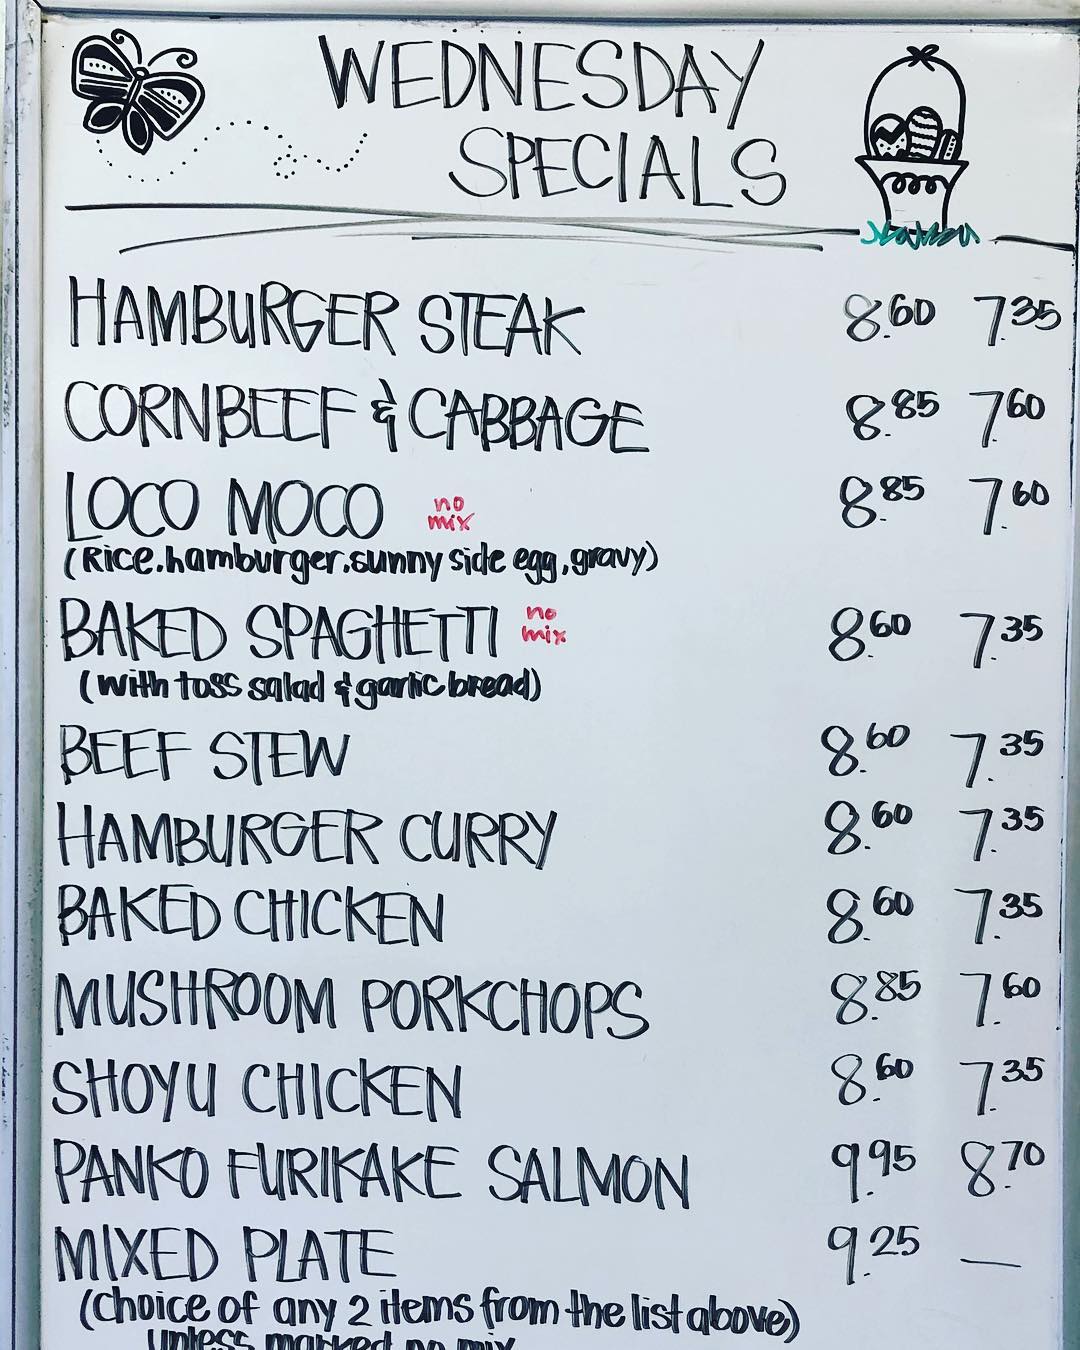 WEDNESDAY
SPECIALS
HAMBURGER STEAK 8.60 7.35
CORNBEEF & CABBAGE 8.85 7.60
LOCO MOCO no mix 8.85 7.60
(Rice.hamburger.sunny side egg, gravy)
BAKED SPAGHETTI no mix 8.60 7.35
(with toss salad & garlic bread)
BEEF STEW 8.60 7.35
HAMBURGER CURRY 8.60 7.35
BAKED CHICKEN 8.60 7.35
MUSHROOM PORKCHOPS 8.85 7.60
SHOYU CHICKEN 8.60 7.35
PANKO FURIKAKE SALMON 9.95 8.70
MIXED PLATE 9.25 —
(Choice of any 2 items from the list above)
unless marked no mix